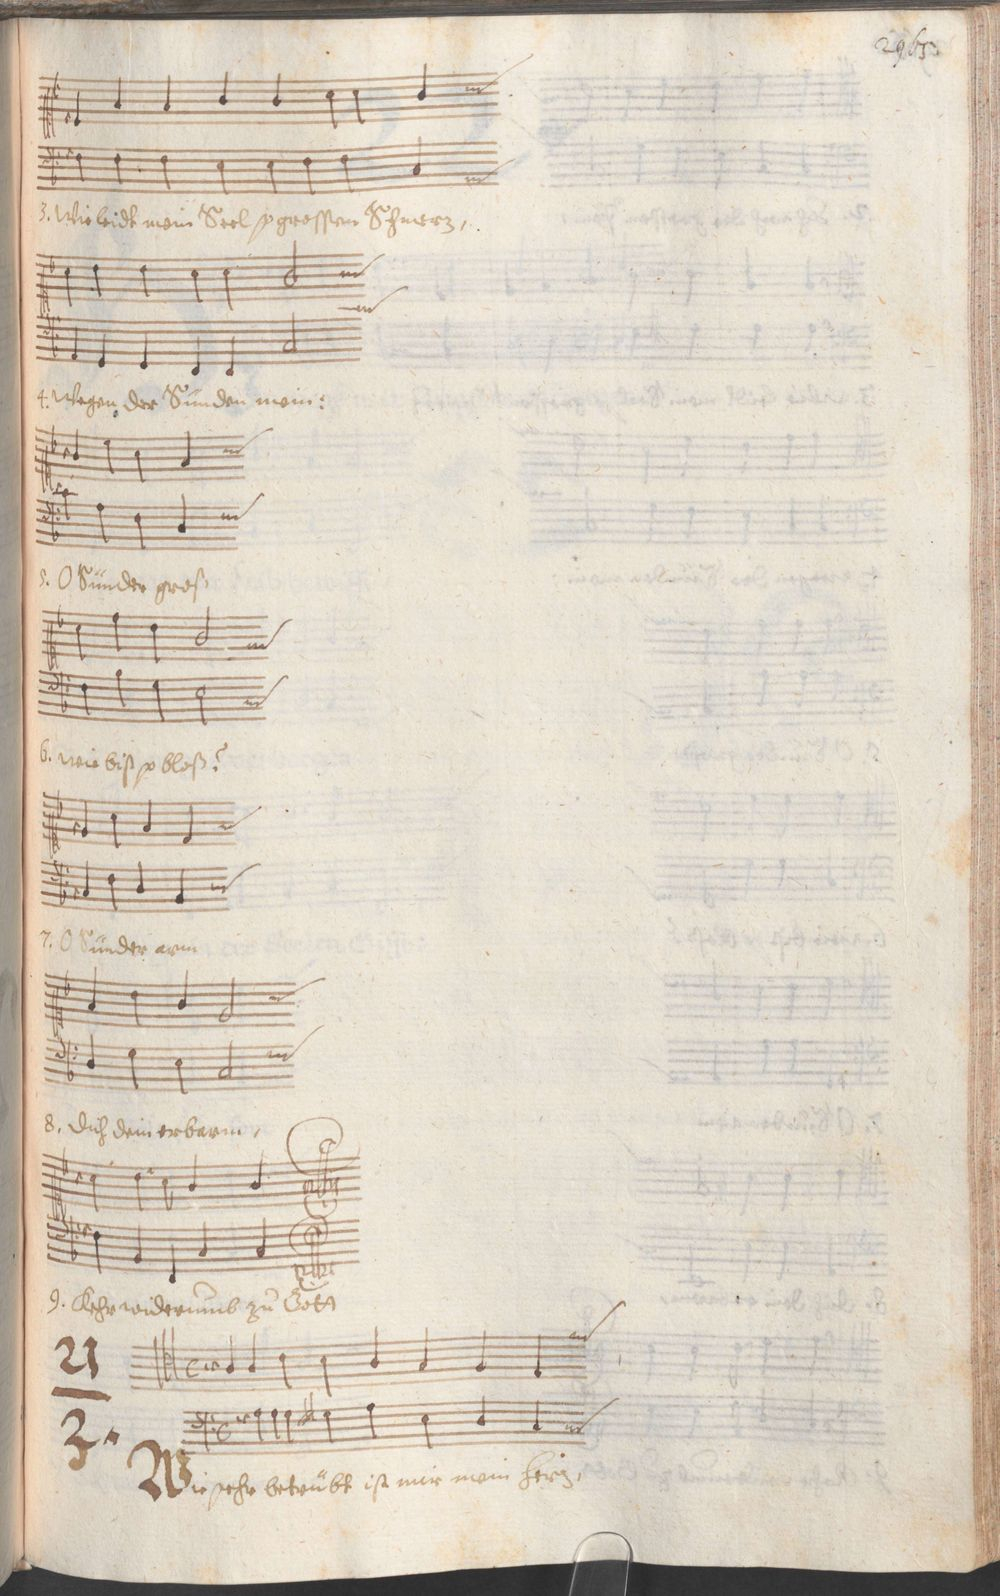 3. Wie leidt mein Seel so grossen Schmerz,
4. Wegen der Sünden mein:
5. O Sünder gros
6. wie bist so bloß?
7. O Sünder arm
8. dich dein erbarm,
9. Kehr widerumb zu Gott
21
3.
Wie sehr betrübt ist mir mein Herz,